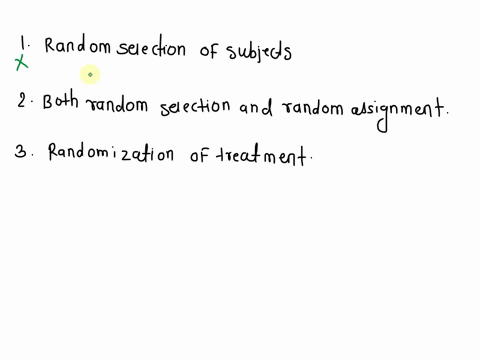 1. Random selection of subjects
x
2. Both random selection and random assignment.
3. Randomization of treatment.